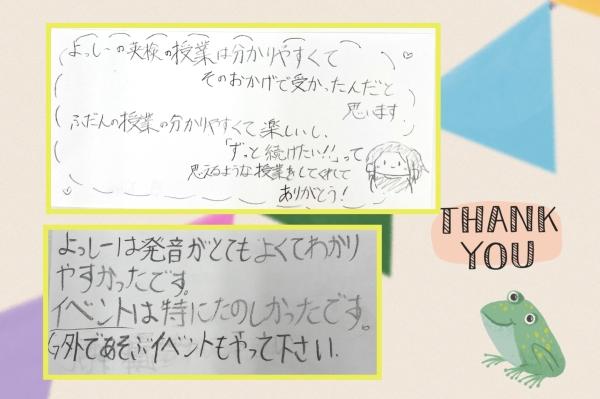 よっしーの英検の授業は分かりやすくて
そのおかげで受かったんだと
思います。
ふだんの授業の分かりやすくて楽しいし、
「ずっと続けたい!!」って
思えるような授業をしてくれて
ありがとう!
よっしーは発音がとてもよくてわかり
やすかったです。
イベントは特にたのしかったです。
外であそぶイベントもやって下さい.
THANK
YOU